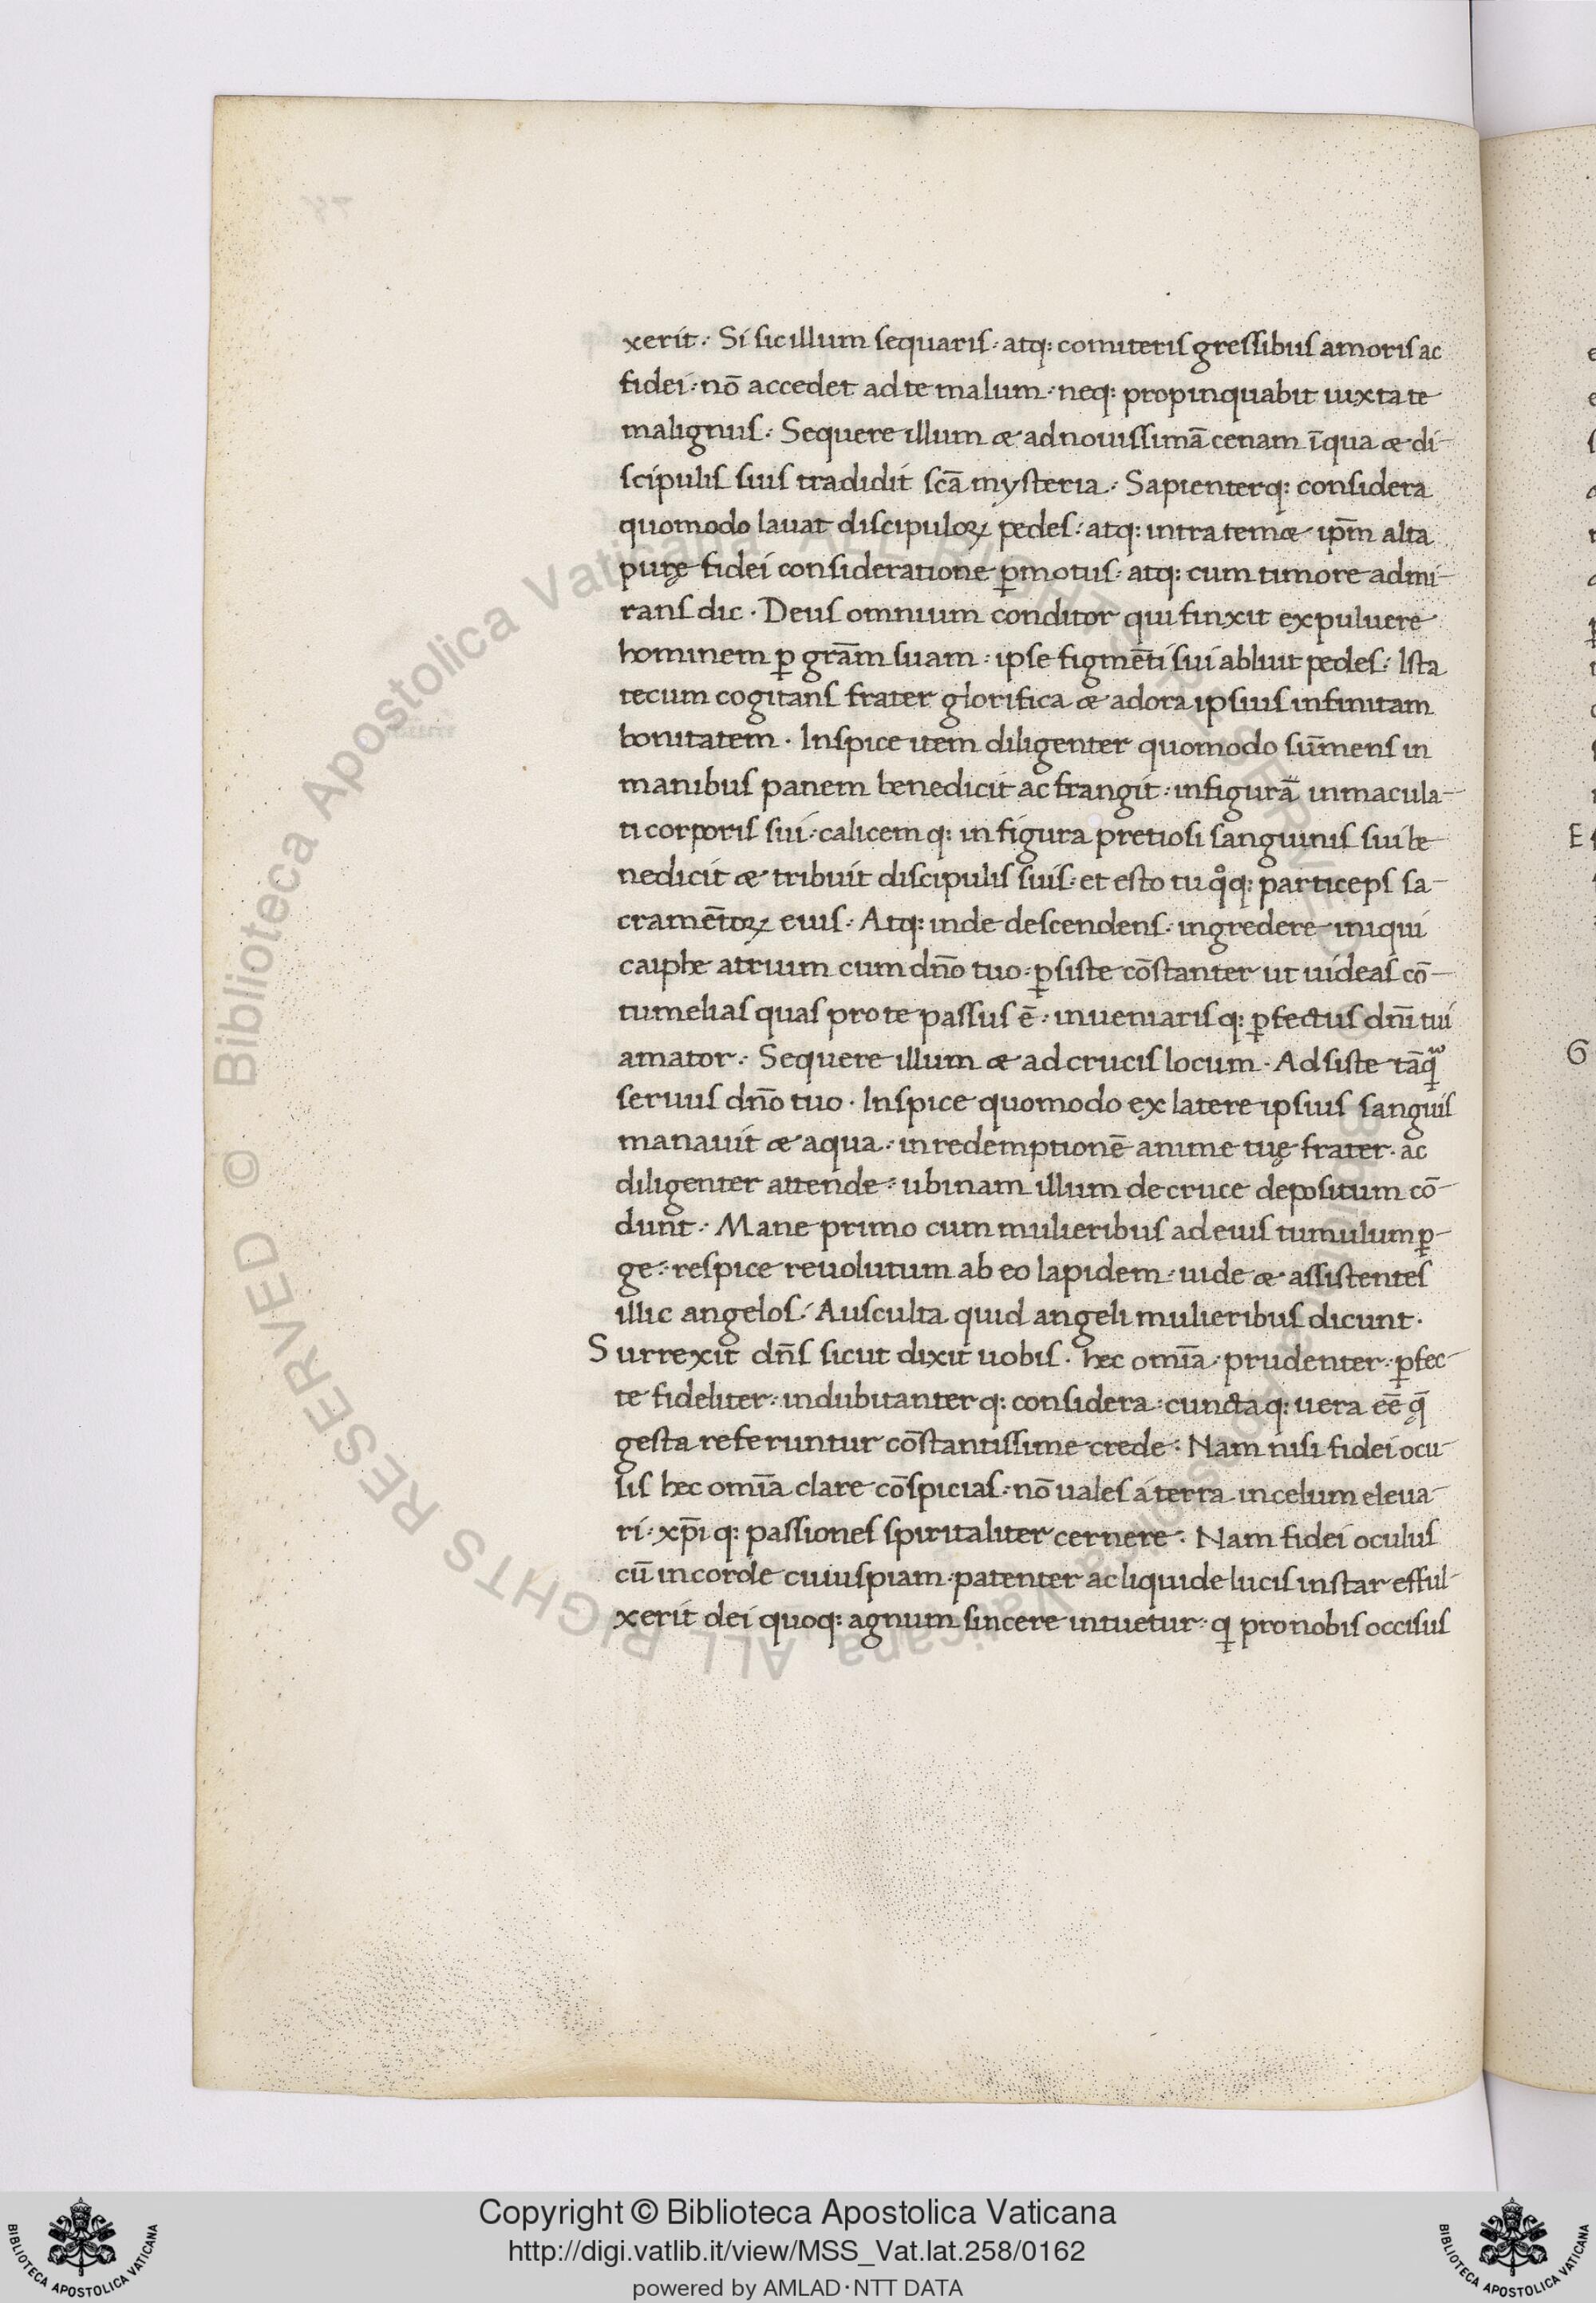 xerit. Si sic illum sequaris. atq: comiteris gressibus amoris ac
fidei. nō accedet ad te malum. neq: propinquabit iuxta te
malignus. Sequere illum & ad nouissimā cenam ī qua & di-
scipulis suis tradidit scā mysteria. Sapienterq: considera
quomodo lauat discipuloꝝ pedes. atq: intra tem& ipm̄ alta
purę fidei consideratione ꝑmotus. atq: cum timore admi-
rans dic. Deus omnium conditor qui finxit ex puluere
hominem ꝑ grām suam. ipse figmēti sui abluit pedes. Ista
tecum cogitans frater glorifica & adora ipsius infinitam
bonitatem. Inspice item diligenter quomodo sūmens in
manibus panem benedicit ac frangit. in figurā inmacula-
ti corporis sui. calicemq: in figura pretiosi sanguinis sui be
nedicit & tribuit discipulis suis. et esto tu qͦq: particeps sa-
cramētoꝝ eius. Atq: inde descendens. ingredere iniqui
caiphe atrium cum dn̄o tuo. ꝑsiste cōstanter ut uideas cō-
tumelias quas pro te passus ē. inueniarisq: ꝑfectus dn̄i tui
amator. Sequere illum & ad crucis locum. Adsiste tāqͣ
seruus dn̄o tuo. Inspice quomodo ex latere ipsius sanguis
manauit & aqua. in redemptionē anime tuę frater. ac
diligenter attende. ubinam illum de cruce depositum cō-
dunt. Mane primo cum mulieribus ad eius tumulum ꝑ-
ge. respice reuolutum ab eo lapidem. uide & assistentes
illic angelos. Ausculta quid angeli mulieribus dicunt.
Surrexit dn̄s sicut dixit uobis. hec omīa. prudenter. ꝑfec-
te fideliter. indubitanterq: considera. cunctaq: uera eē q̄
gesta referuntur cōstantissime crede. Nam nisi fidei ocu-
lis hec omīa clare cōspicias. nō uales á terra in celum eleua-
ri. xp̄iq: passiones spiritaliter cernere. Nam fidei oculus
cū in corde cuiuspiam. patenter ac liquide lucis instar efful-
xerit dei quoq: agnum sincere intuetur. ꝗ pro nobis occisus
E
G
Biblioteca Apostolica Vaticana ALL RIGHTS RESERVED ©
Copyright © Biblioteca Apostolica Vaticana
http://digi.vatlib.it/view/MSS_Vat.lat.258/0162
powered by AMLAD·NTT DATA
BIBLIOTECA APOSTOLICA VATICANA
BIBLIOTECA APOSTOLICA VATICANA